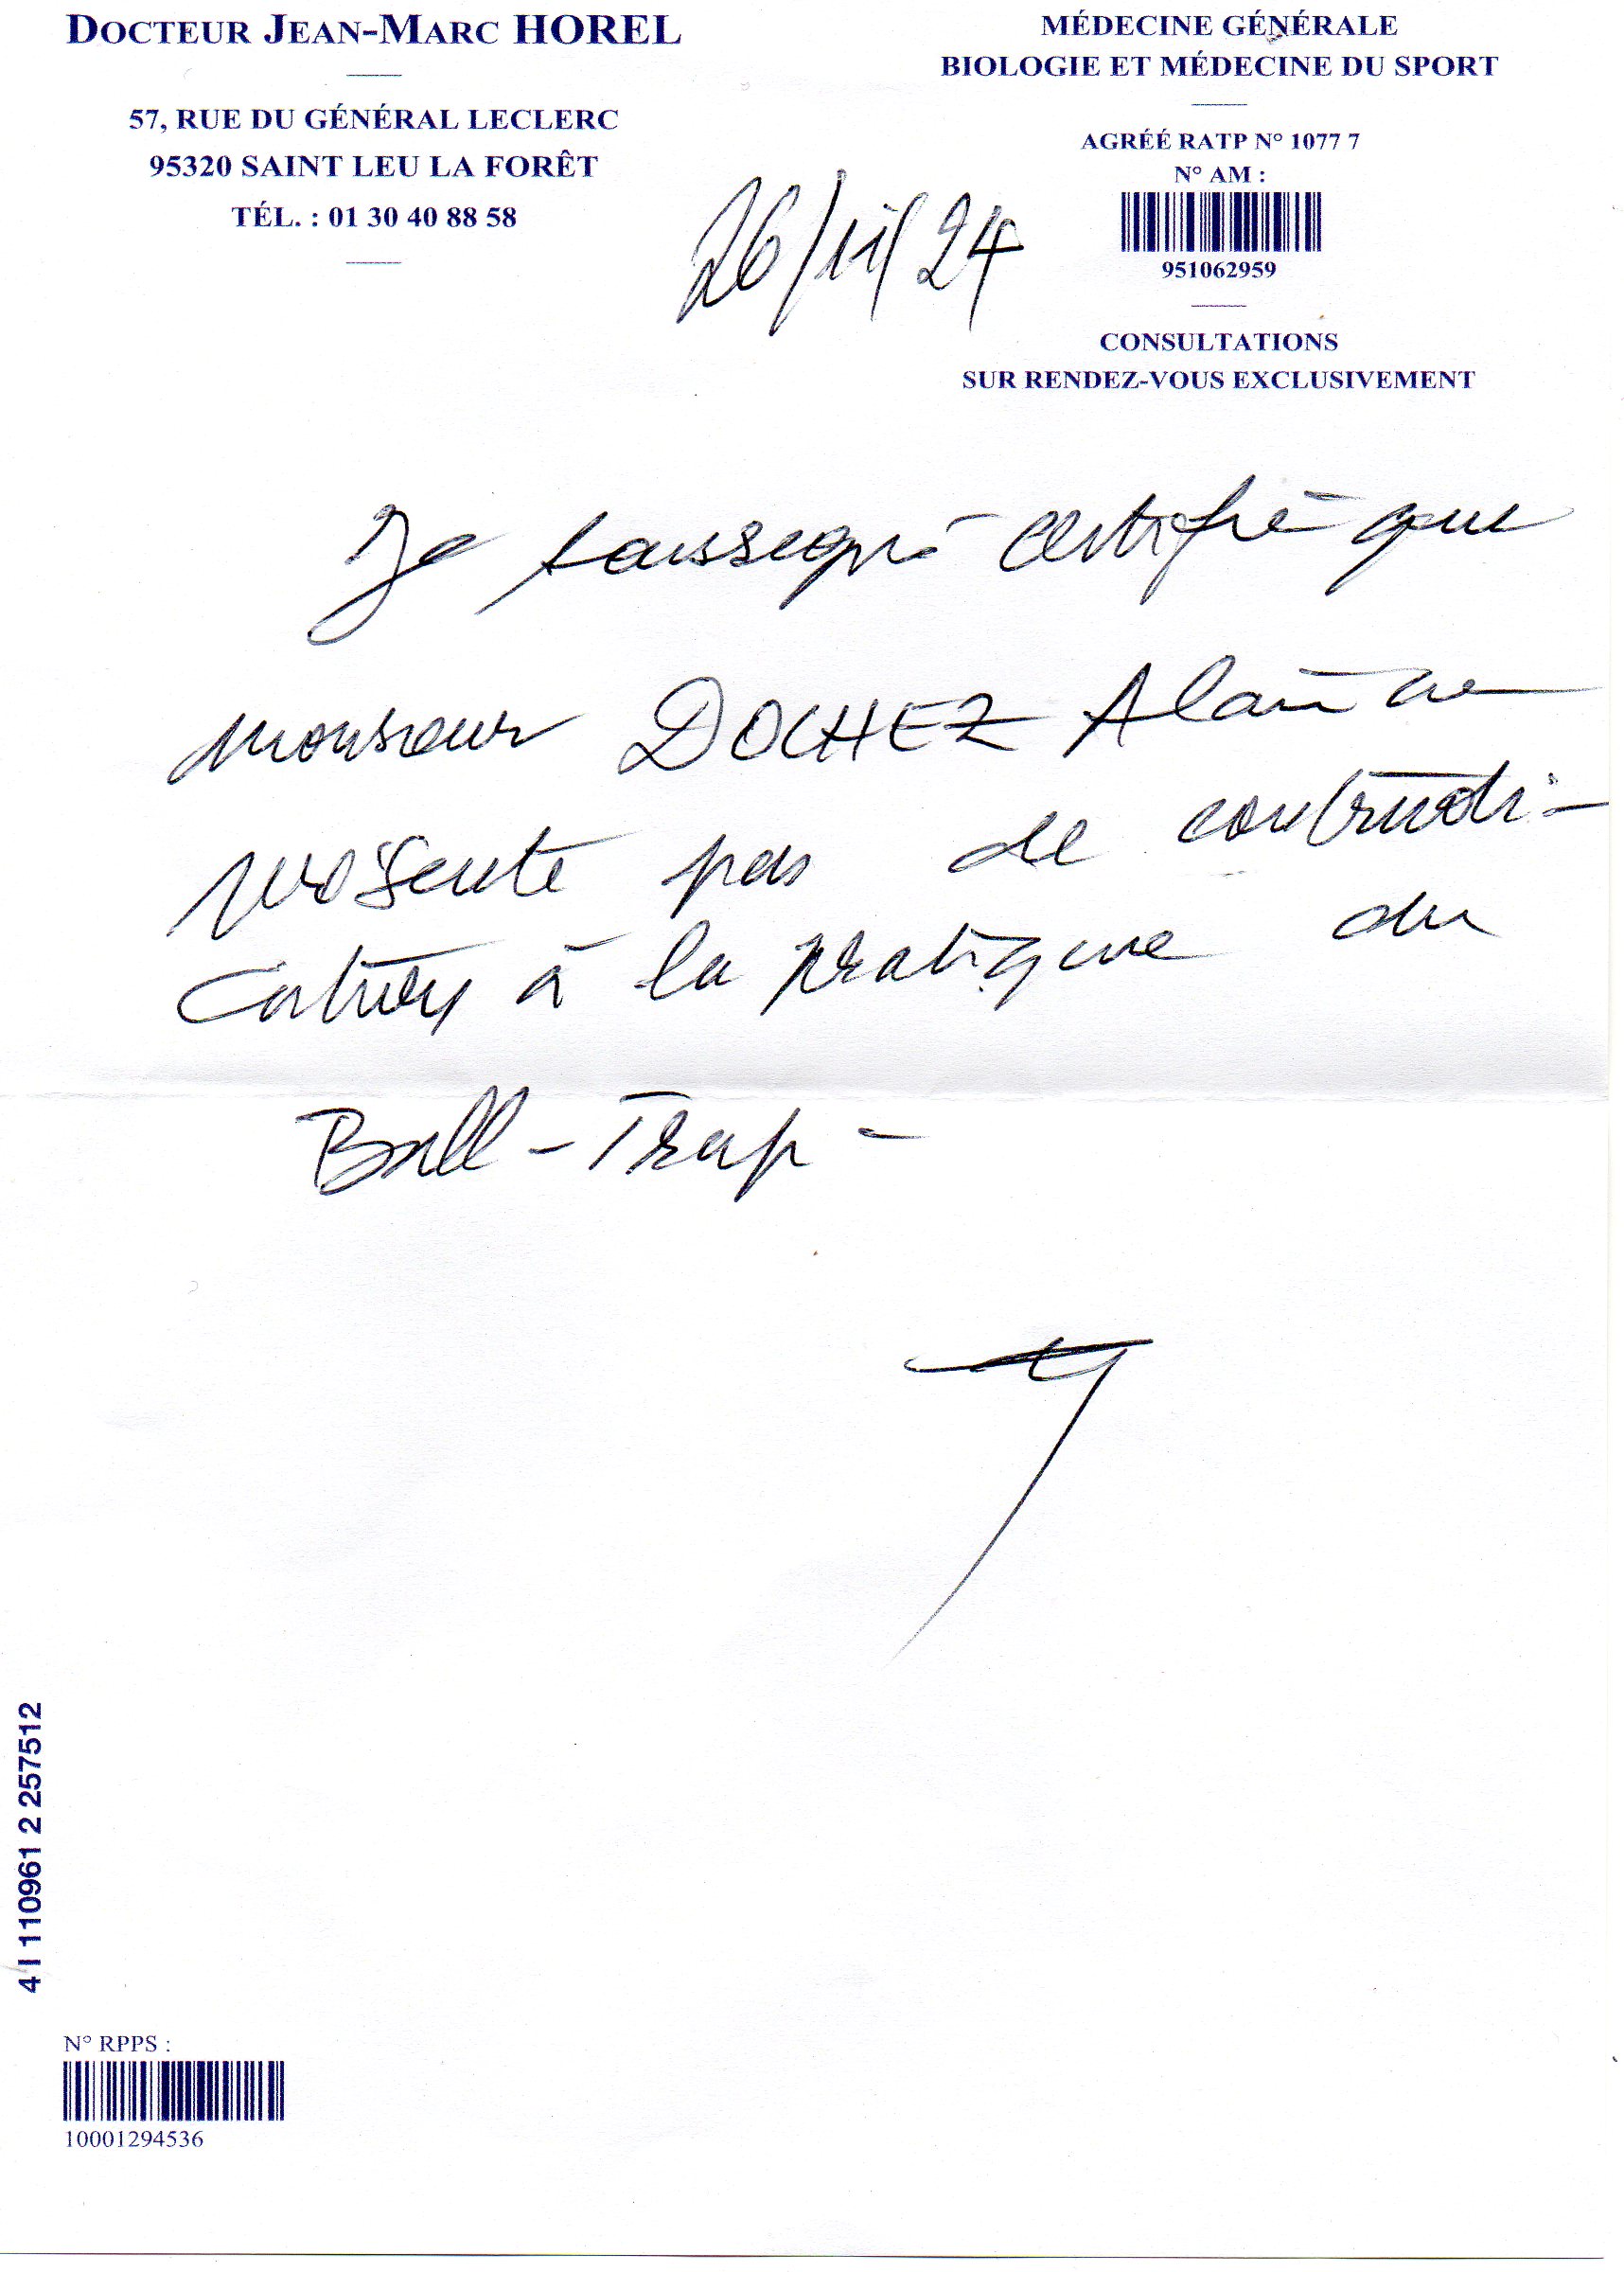 DOCTEUR JEAN-MARC HOREL
57, RUE DU GÉNÉRAL LECLERC
95320 SAINT LEU LA FORÊT
TÉL. : 01 30 40 88 58
MÉDECINE GÉNÉRALE
BIOLOGIE ET MÉDECINE DU SPORT
AGRÉÉ RATP N° 1077 7
N° AM :
951062959
CONSULTATIONS
SUR RENDEZ-VOUS EXCLUSIVEMENT
26/11/24
Je soussigné certifie que
monsieur DOCHEZ Alain ne
présente pas de contrindi-
cations à la pratique du
Ball-Trap-
4 I 110961 2 257512
N° RPPS :
10001294536